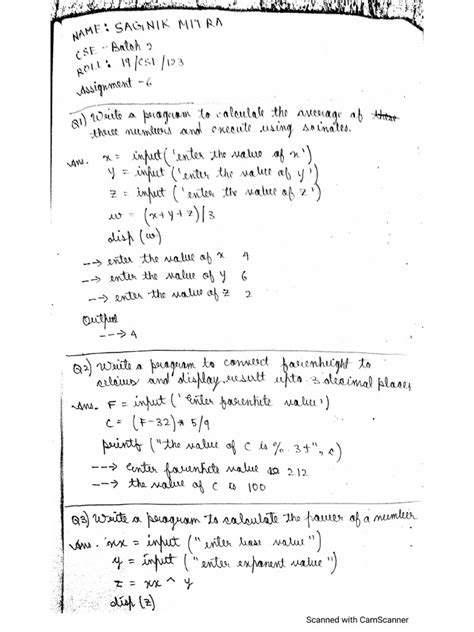 NAME: SAGNIK MITRA
CSE - Batch 2
ROLL: 19/CSE/123
Assignment - 6
Q1) Write a program to calculate the average of
three numbers and execute using
Ans. x = input('enter the value of x')
y = input('enter the value of y')
z = input('enter the value of z')
w = (x+y+z)/3
disp(w)
--> enter the value of x 4
--> enter the value of y 6
--> enter the value of z 2
Output
--> 4
Q2) Write a program to convert farenheight to
and display result upto 3 decimal places
Ans. F = input('Enter farenhite value')
C = (F-32)*5/9
printf("the value of C is %.3f", c)
--> Enter farenhite value 212
--> the value of C is 100
Q3) Write a program to calculate the power of a number
Ans. xx = input("enter base value")
y = input("enter exponent value")
z = xx ^ y
disp(z)
Scanned with CamScanner